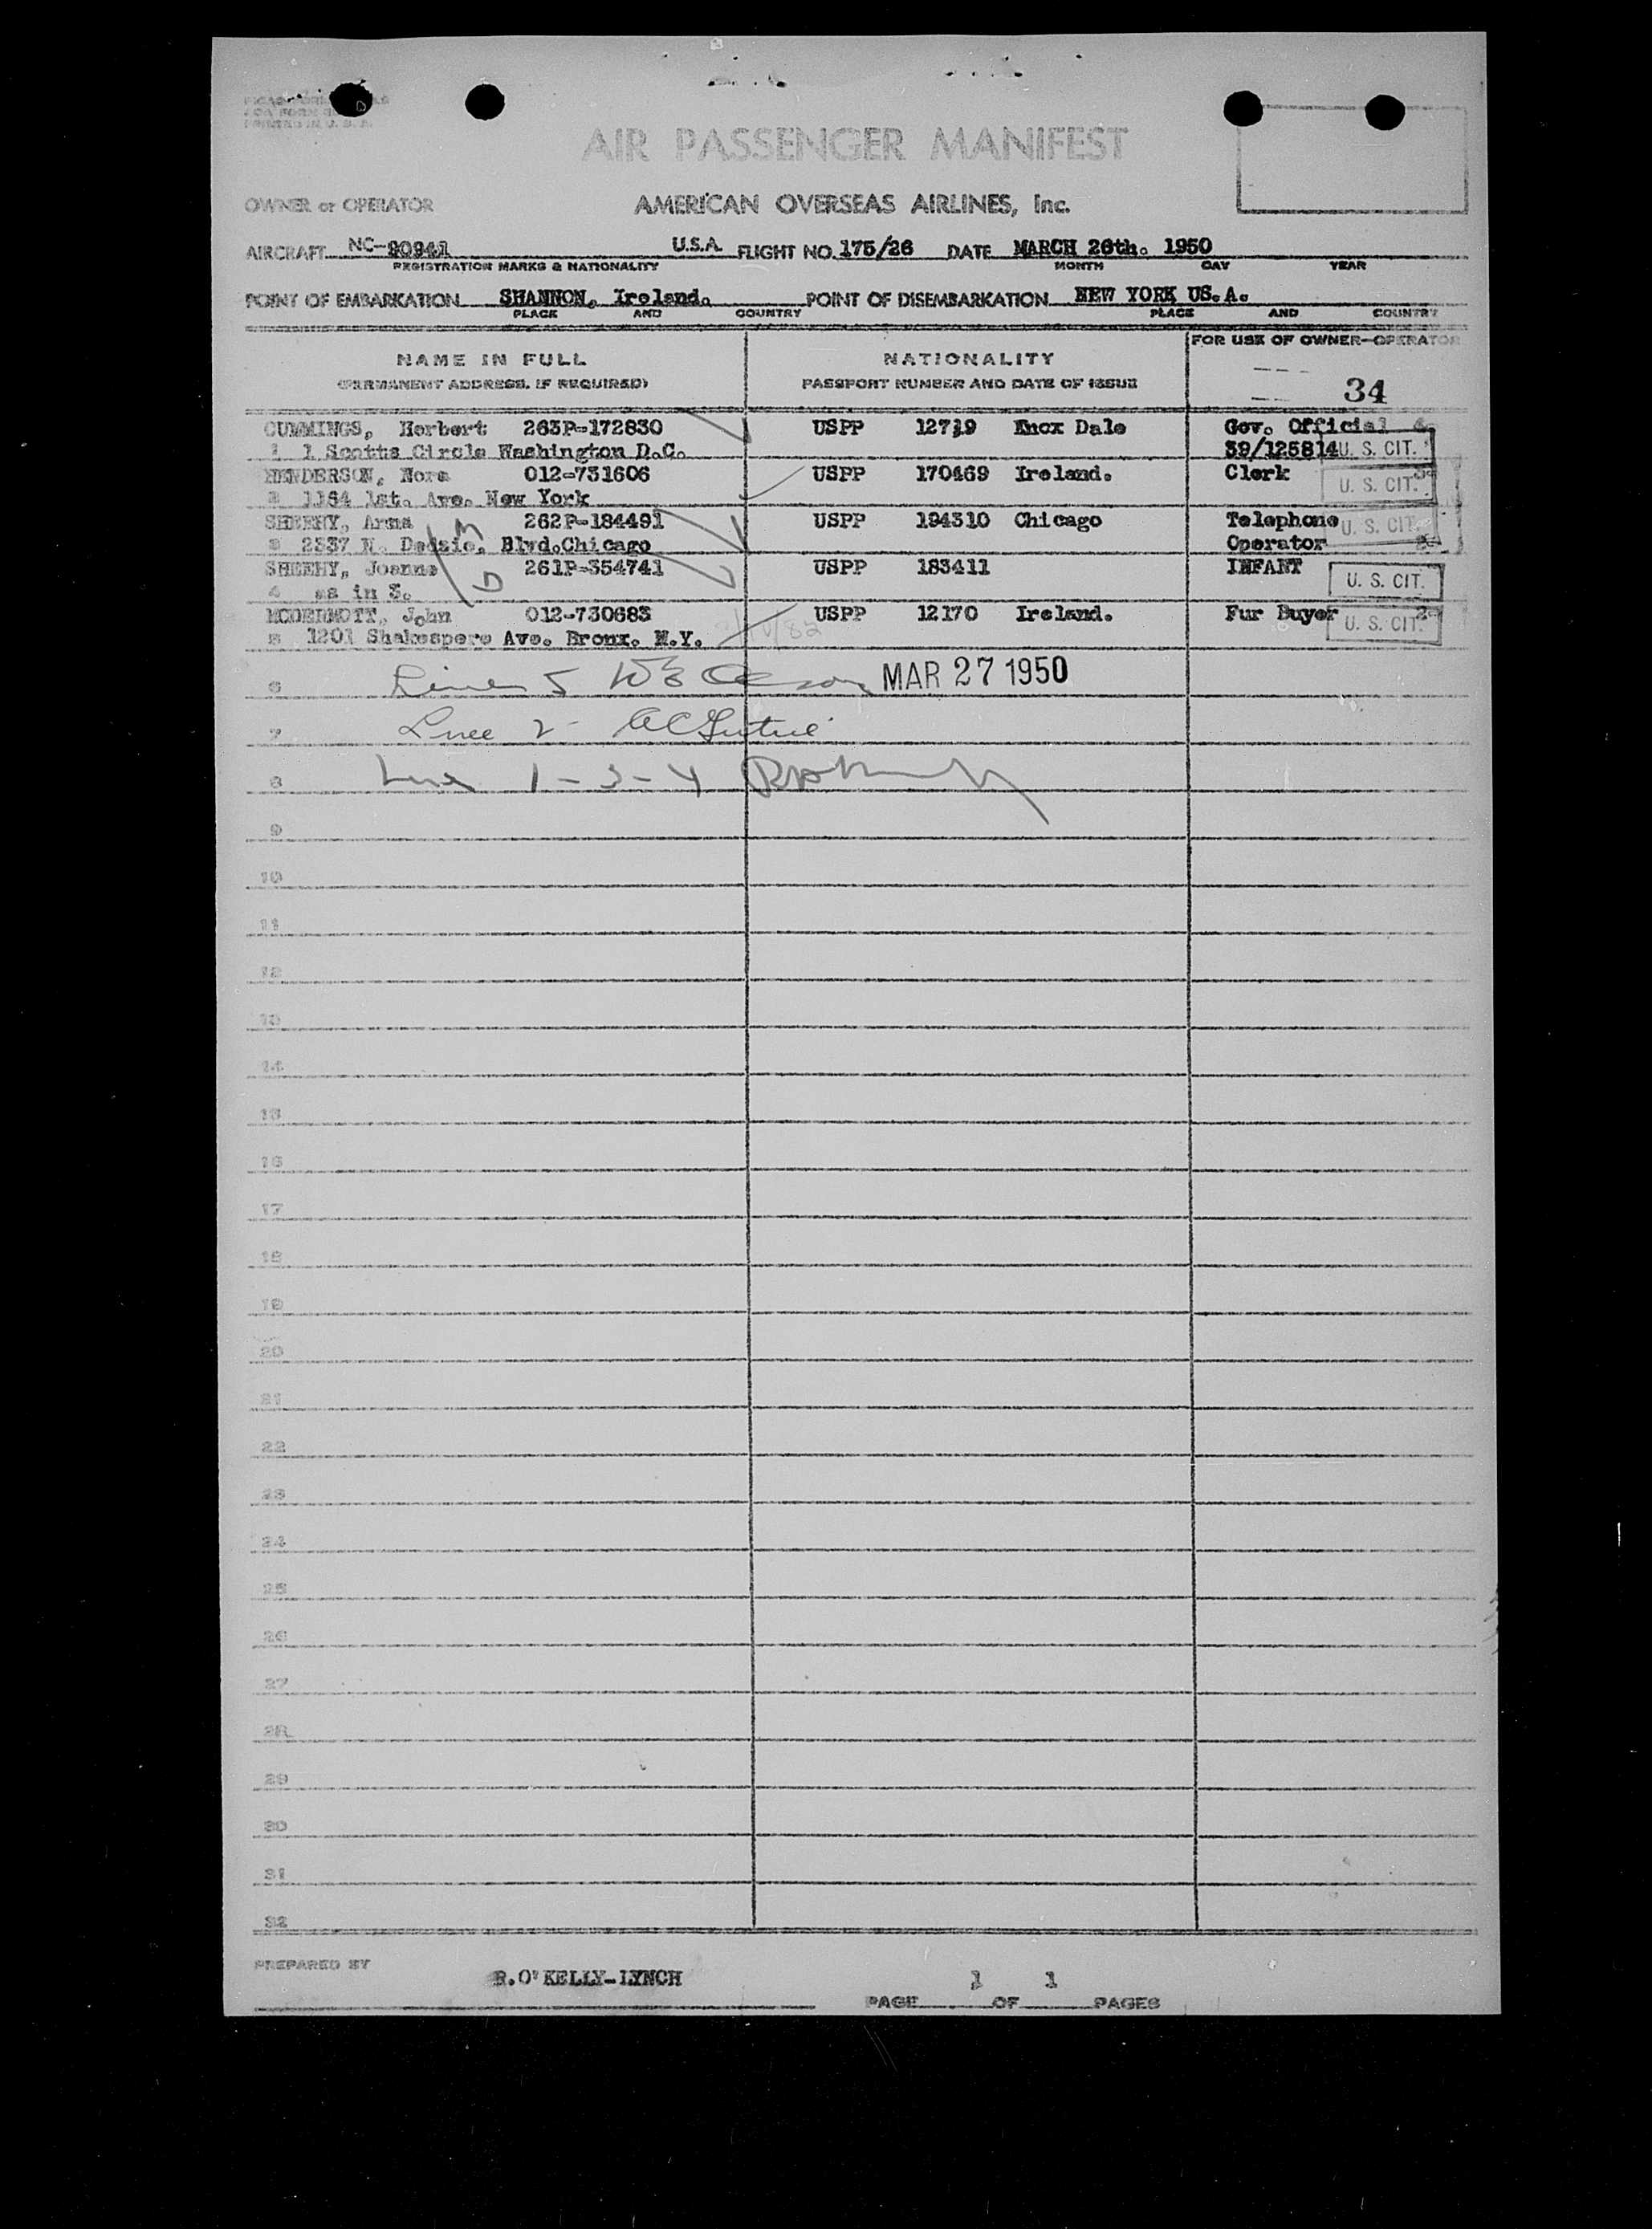 PRINTED IN U. S. A.
AIR PASSENGER MANIFEST
OWNER or OPERATOR AMERICAN OVERSEAS AIRLINES, Inc.
AIRCRAFT NC-90941 U.S.A. FLIGHT NO. 175/26 DATE MARCH 26th. 1950
REGISTRATION MARKS & NATIONALITY MONTH DAY YEAR
POINT OF EMBARKATION SHANNON, Ireland. POINT OF DISEMBARKATION NEW YORK US.A.
PLACE AND COUNTRY PLACE AND COUNTRY
NAME IN FULL NATIONALITY FOR USE OF OWNER-OPERATOR
(PERMANENT ADDRESS, IF REQUIRED) PASSPORT NUMBER AND DATE OF ISSUE 34
CUMMINGS, Herbert 263P-172830 USPP 12719 Knox Dale Gov. Official 4
1 1 Scotts Circle Washington D.C. 39/125814 U. S. CIT.
HENDERSON, Nora 012-731606 USPP 170469 Ireland. Clerk
2 1164 1st. Ave. New York U. S. CIT.
SHEEHY, Anna M 262P-184491 USPP 194310 Chicago Telephone U. S. CIT.
3 2337 N. Blvd.Chicago Operator
SHEEHY, Joanne D 261P-354741 USPP 183411 INFANT U. S. CIT.
4 as in 3.
MCDERMOTT, John 012-730683 USPP 12170 Ireland. Fur Buyer 2
5 1201 Shakespere Ave. Bronx. N.Y. U. S. CIT.
6 Line 5 MAR 27 1950
7 Line 2
8 Line 1-3-4
9
10
11
12
13
14
15
16
17
18
19
20
21
22
23
24
25
26
27
28
29
30
31
32
PREPARED BY R.O'KELLY-LYNCH PAGE 1 OF 1 PAGES